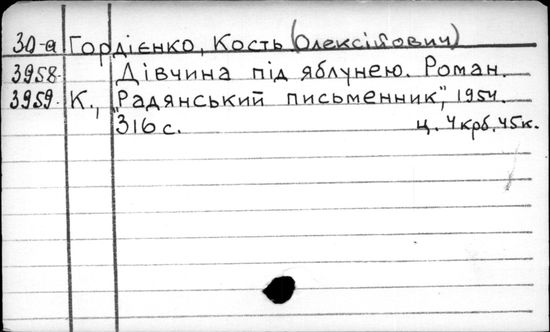 30-а Гордієнко, Кость (Олексійович)
3958. Дівчина під яблунею. Роман.
3959. К., "Радянський письменник", 1954.
316 с. ц. 4 крб. 45 к.